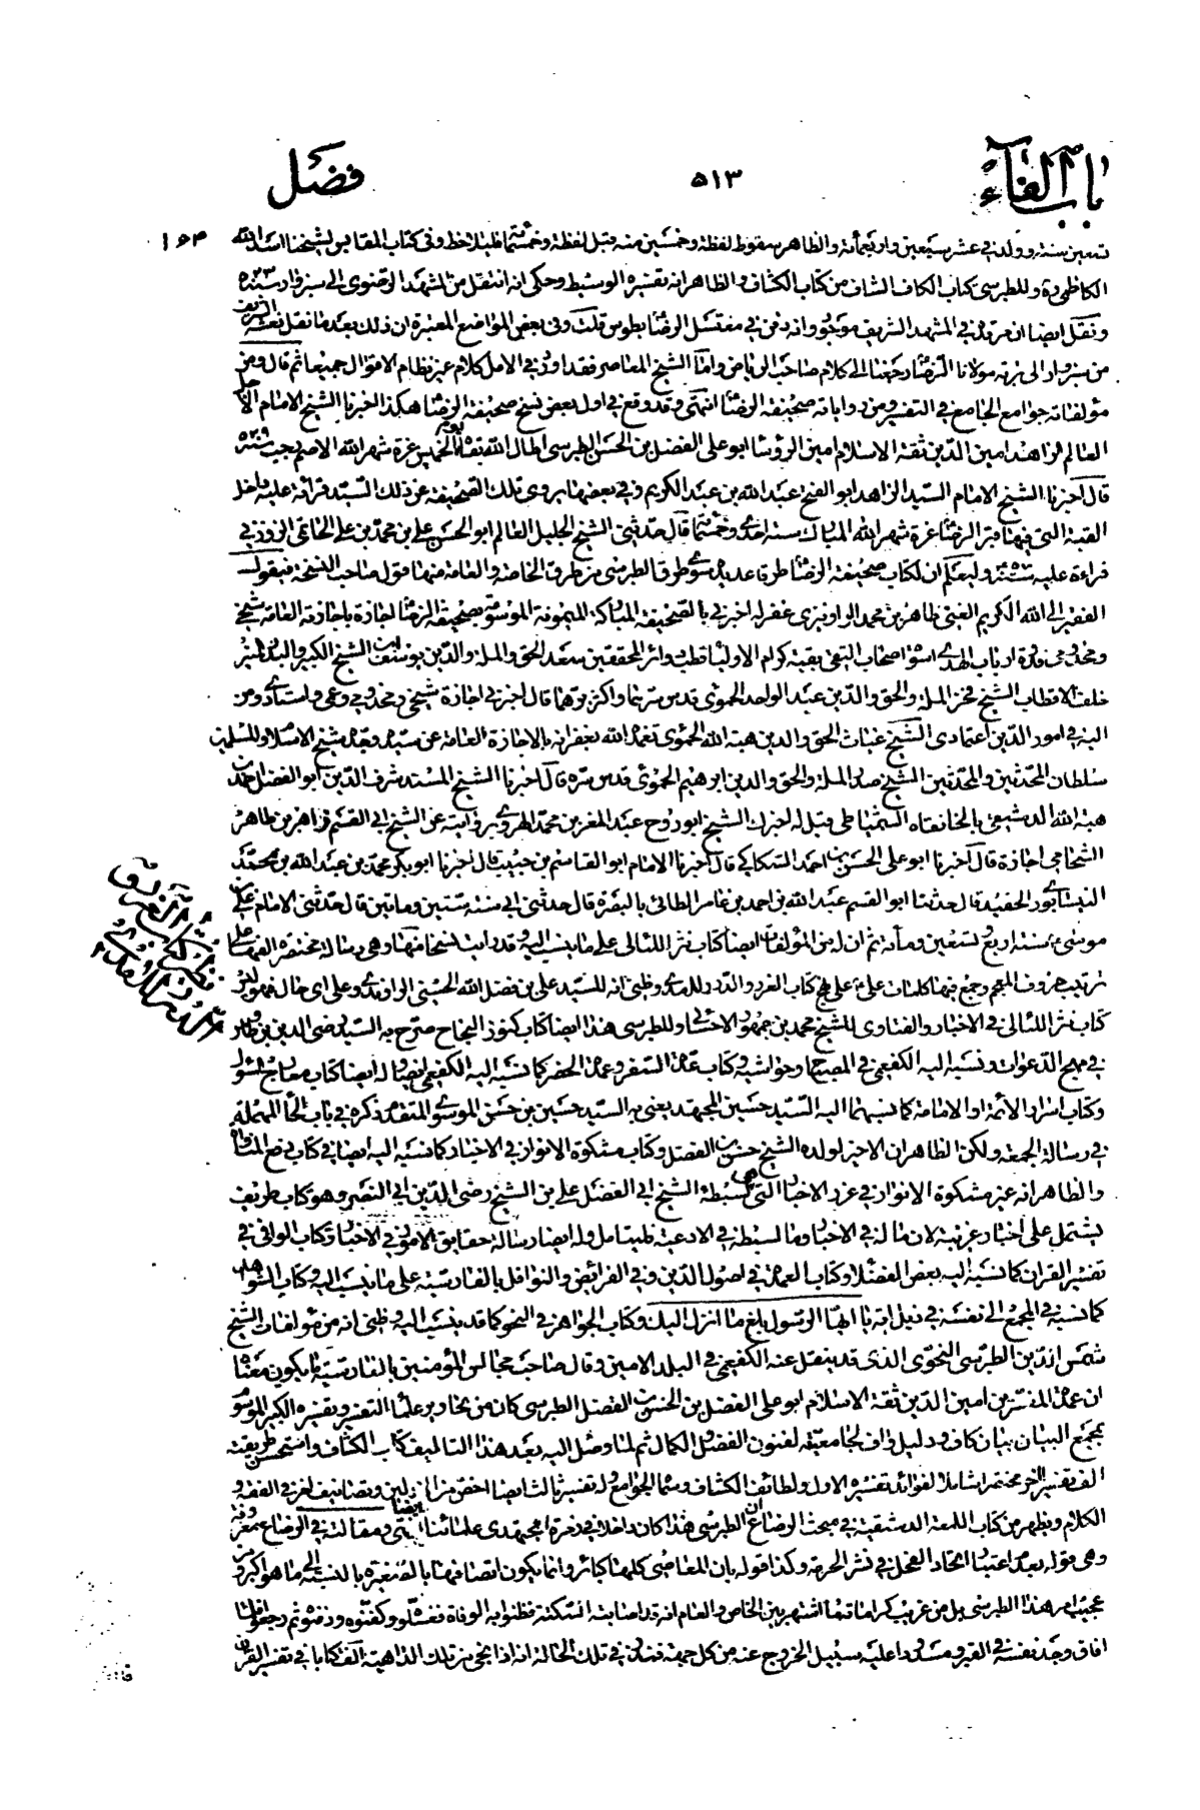 باب الفاء
٥١٣
فضل
تسعين سنة وولد في عشر سبعين واربعمائة والظاهر سقوط لفظة وخمسين منه قبل لفظة وخمسمائة فليلاحظ وفى كتاب المقابس لشيخنا اسد الله
الكاظمى ره وللطبرسى كتاب الكاف الشاف من كتاب الكشاف والظاهر انه تفسيره الوسيط وحكى انه انتقل من المشهد الرضوى الى سبزوار سنة ٥٢٣
ونقل ايضا ان مرقده في المشهد الشريف موجود وانه دفن في مغتسل الرضا بطوس قلت وفى بعض المواضع المعتبرة ان ذلك بعد ما نقل نعشه الشريف
من سبزوار الى تربة مولانا الرضا رجعنا الى كلام صاحب الرياض واما الشيخ المعاصر فقد اورد في الامل كلام غير نظام الاقوال جميعا ثم قال ومن
مؤلفاته جوامع الجامع في التفسير ومن رواياته صحيفة الرضا انتهى وقد وقع في اول بعض نسخ صحيفة الرضا هكذا اخبرنا الشيخ الامام الاجل
العالم الزاهد امين الدين ثقة الاسلام امين الرؤسا ابو على الفضل بن الحسن الطبرسى اطال الله بقاه يوم الخميس غرة شهر الله الاصم رجب سنة ٥٢٩
قال اخبرنا الشيخ الامام السيد الزاهد ابو الفتح عبد الله بن عبد الكريم وفي بعضها يروى تلك الصحيفة عن ذلك السيد قرائة عليه داخل
القبة التي فيها قبر الرضا غرة شهر الله المبارك سنة احدى وخمسمائة قال حدثنى الشيخ الجليل العالم ابو الحسن على بن محمد بن على الحاتمى الزوزنى
قراءة عليه سنة ٤٥٢ وليعلم ان لكتاب صحيفة الرضا طرقا عديدة سوى طرق الطبرسى من طرق الخاصة والعامة منها قول صاحب النسخة فيقول
الفقير الى الله الكريم الغنى ظاهر بن محمد الراونيزى غفر له اخبرنى بالصحيفة المباركة الميمونة الموسومة بصحيفة الرضا اجازة باجازته العامة شيخى
ومخدومى قدوة ارباب الهدى اسوة اصحاب التقى بقية كرام الاوليا قطب دائر المحققين سعد الحق والملة والدين يوسف ابن الشيخ الكبير والبدر المنير
خلف الاقطاب الشيخ فخر الملة والحق والدين عبد الواحد الحموئى قدس سرهما واكثر برهما قال اخبرنى اجازة شيخى ومخدومى وعمى واستادى ومن
اليه في امور الدين اعتمادى الشيخ غياث الحق والدين هبة الله الحموئى تغمده الله بغفرانه بالاجازة العامة عن سيده وجده شيخ الاسلام والمسلمين
سلطان المحدثين والمحدثين الشيخ صدر الملة والحق والدين ابرهيم الحموئى قدس سره قال اخبرنا الشيخ المسند شرف الدين ابو الفضل احمد بن
هبة الله الدمشقى بالخانقاه السميساطى قيل له اخبرك الشيخ ابو روح عبد المعز بن محمد الهروى بروايته عن الشيخ ابى القسم زاهر بن طاهر
الشحامى اجازة قال اخبرنا ابو على الحسن بن احمد السكاكى قال اخبرنا الامام ابو القاسم بن حبيب قال اخبرنا ابو بكر محمد بن عبد الله بن محمد
النيسابورى الحفيد قال حدثنا ابو القسم عبد الله بن احمد بن عامر الطائى بالبصرة قال حدثنى ابى سنة ستين وماتين قال حدثنى الامام على بن
موسى سنة اربع وتسعين ومأة ثم ان له من المؤلفات ايضا كتاب نثر اللئالى على ما ينسب اليه وقد رايت نسخا منها وهى رسالة مختصرة الفها على
ترتيب حروف المعجم وجمع فيها كلمات على على نهج كتاب الغرر والدرر للامدى وظنى انه للسيد على بن فضل الله الحسينى الراوندى وعلى اى حال فهو ليس
كتاب نثر اللئالى في الاخبار والفتاوى للشيخ محمد بن جمهور الاحسائى وللطبرسى هذا ايضا كتاب كنوز النجاح صرح به السيد رضى الدين بن طاوس
في مهج الدعوات ونسبه اليه الكفعمى في المصباح وحواشيه وكتاب عدة السفر وعمدة الحضر كما نسبه اليه الكفعمى ايضا وله ايضا كتاب معارج السؤل
وكتاب اسرار الائمة او الامامة كما نسبهما اليه السيد حسين المجتهد يعنى به السيد حسين بن حسن الموسوى المتقدم ذكره في باب الحاء المهملة
في رسالة الجمعة ولكن الظاهر ان الاخير لولده الشيخ حسن بن الفضل وكتاب مشكوة الانوار في الاخبار كما نسبه اليه ايضا في كتاب دفع المناواة
والظاهر انه غير مشكوة الانوار في غرر الاخبار التى هى لسبطه الشيخ ابى الفضل على بن الشيخ رضى الدين ابى النصر وهو كتاب طريف
يشتمل على اخبار غريبة لان ماله في الاخبار وما لسبطه في الادعية فليتامل وله ايضا رسالة حقايق الامور في الاخبار وكتاب الوافى في
تفسير القران كما نسبه اليه بعض الفضلاء وكتاب العمدة في اصول الدين وفي الفرائض والنوافل بالفارسية على ما ينسب اليه وكتاب الشواهد
كما نسبه في المجمع الى نفسه في ذيل اية يا ايها الرسول بلغ ما انزل اليك وكتاب الجواهر في النحو كما قد ينسب اليه وظنى انه من مؤلفات الشيخ
شمس الدين الطبرسى النحوى الذى قد ينقل عنه الكفعمى في البلد الامين وقال صاحب مجالس المؤمنين بالفارسية ما يكون معناه
ان عمدة المفسرين امين الدين ثقة الاسلام ابو على الفضل بن الحسن بن الفضل الطبرسى كان من نحارير علماء التفسير وتفسيره الكبير الموسوم
بمجمع البيان بيان كاف ودليل واف لجامعيته لفنون الفضل والكمال ثم لما وصل اليه بعد هذا التاليف كتاب الكشاف واستحسن طريقته
الف تفسيرا اخر مختصرا شاملا لفوائد تفسيره الاول ولطائف الكشاف وسماه الجوامع وله تفسير ثالث ايضا اخصر من الاولين وتصانيف اخر في الفقه و
الكلام ويظهر من كتاب اللمعة الدمشقية في مبحث الرضاع ان الطبرسى هذا كان داخلا في زمرة مجتهدى علمائنا ايضا انتهى ومقالته في الرضاع معروفة
وهى قوله بعدم اعتبار اتحاد الفحل في نشر الحرمة وكذا قوله بان المعاصى كلها كبائر وانما يكون اتصافها بالصغيرة بالنسبة الى ما هو اكبر ومن
عجيب امر هذا الطبرسى بل من غريب كراماته ما اشتهر بين الخاص والعام انه قد اصابته السكتة فظنوا به الوفاة فغسلوه وكفنوه ودفنوه ثم رجعوا فلما
افاق وجد نفسه في القبر ومسدودا عليه سبيل الخروج عنه من كل جهة فنذر في تلك الحالة انه اذا نجى من تلك الداهية الف كتابا في تفسير القران